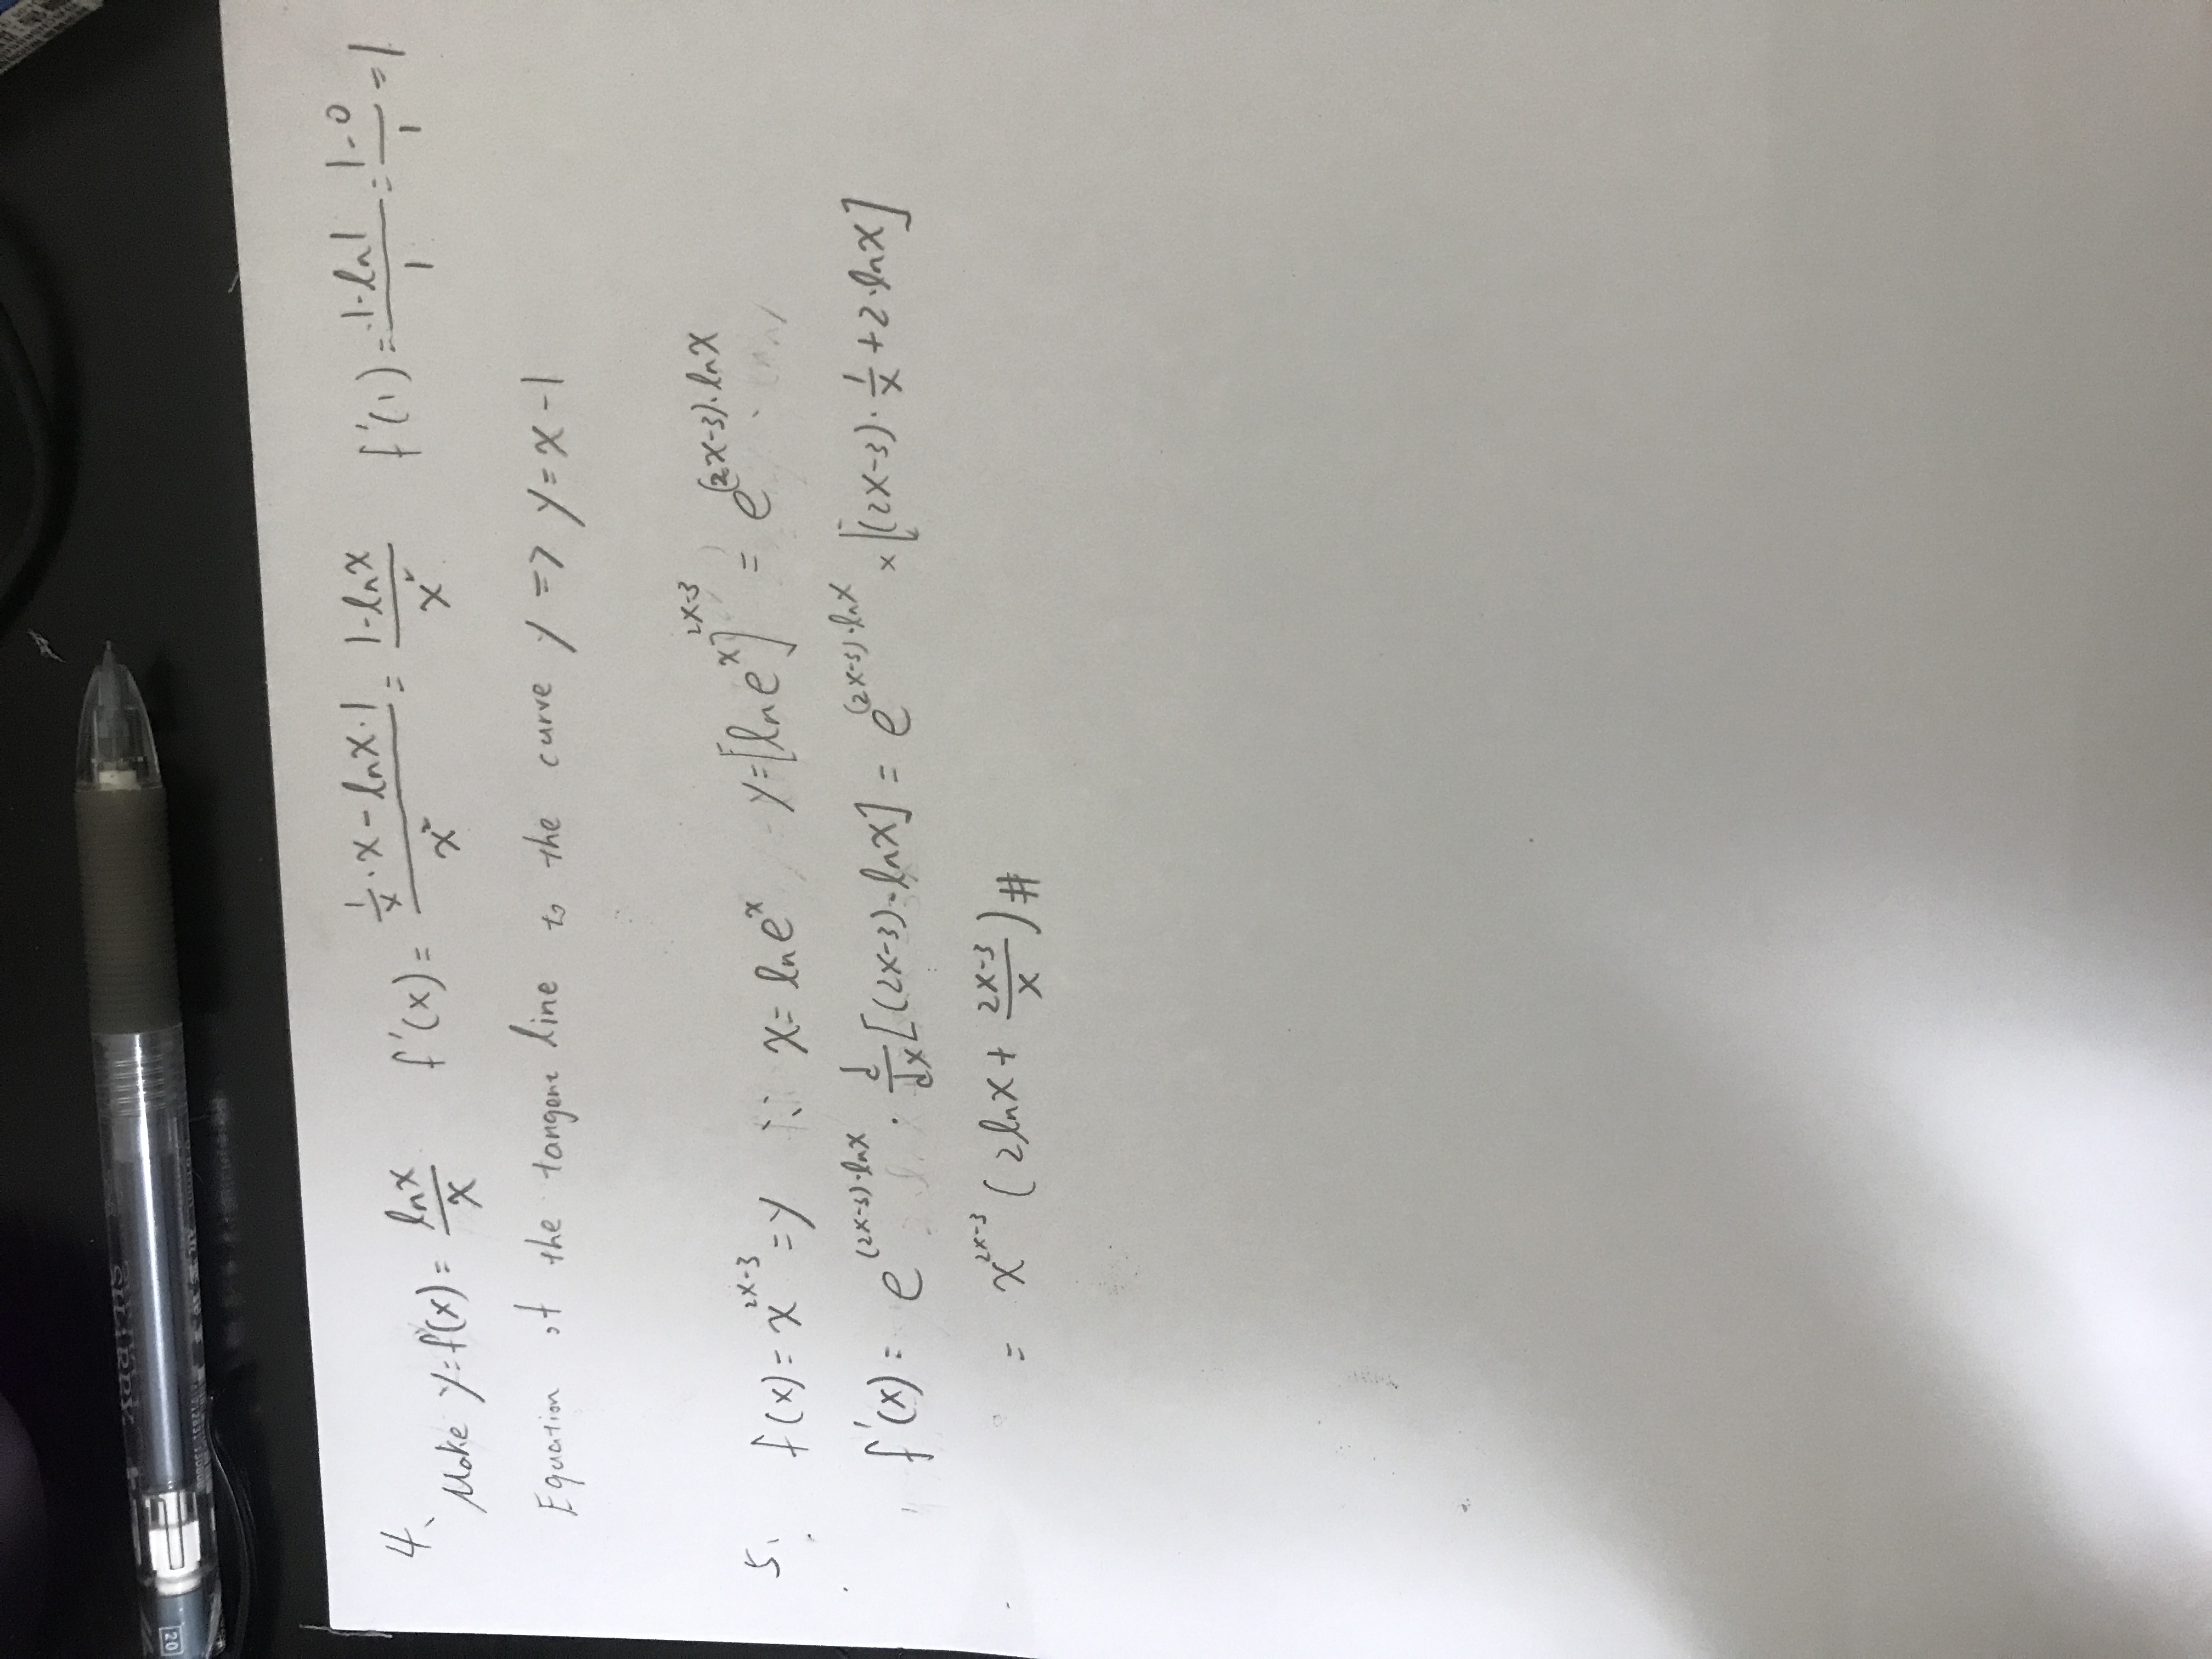 20
4、 Make y=f(x)= lnx/x f'(x)= (1/x·x-lnx·1)/x² = (1-lnx)/x² f'(1)= (1-ln1)/1 = (1-0)/1 =1
Equation of the tangent line to the curve y => y=x-1
5、 f(x)=x^(2x-3)=y ∵ x=lne^x y=[lne^x]^(2x-3) = e^((2x-3)·lnx)
f'(x)= e^((2x-3)·lnx) · d/dx[(2x-3)·lnx] = e^((2x-3)·lnx) × [(2x-3)·1/x+2·lnx]
= x^(2x-3) (2lnx+ (2x-3)/x)#